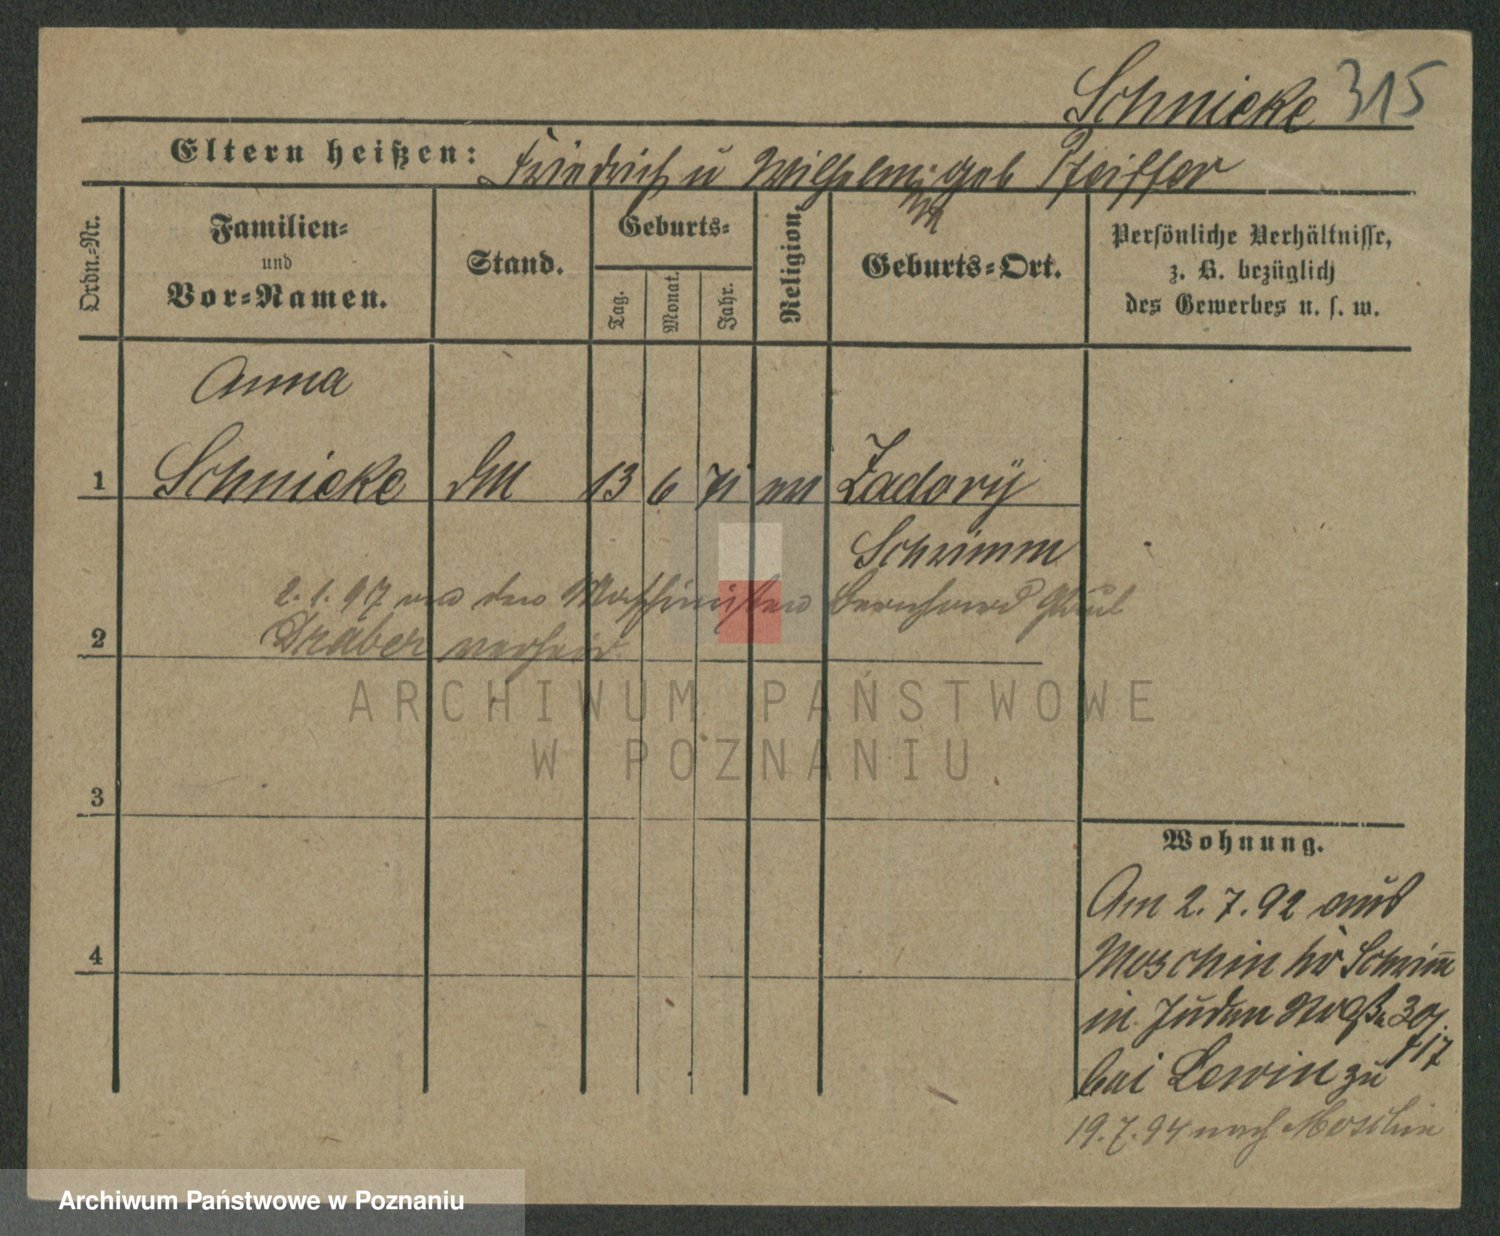 Schnieke 315
Eltern heißen: Friedrich u Wilhelmine geb Pfeiffer
Ordn.-Nr.
Familien-
und
Vor-Namen.
Stand.
Geburts-
Tag.
Monat.
Jahr.
Religion.
Geburts-Ort.
Persönliche Verhältnisse,
z. B. bezüglich
des Gewerbes u. s. w.
Anna
1 Schnieke 13 6 71 Zadory
Schrimm
2. 1. 97 den Maschinisten Bernhard
2 Draber verheir
ARCHIWUM PAŃSTWOWE
W POZNANIU
3
4
Wohnung.
Am 2. 7. 92 aus
Moschin Kr Schrimm
in Juden Straße 30/
bei Lewin zu
19. 7. 94 nach Moschin
Archiwum Państwowe w Poznaniu